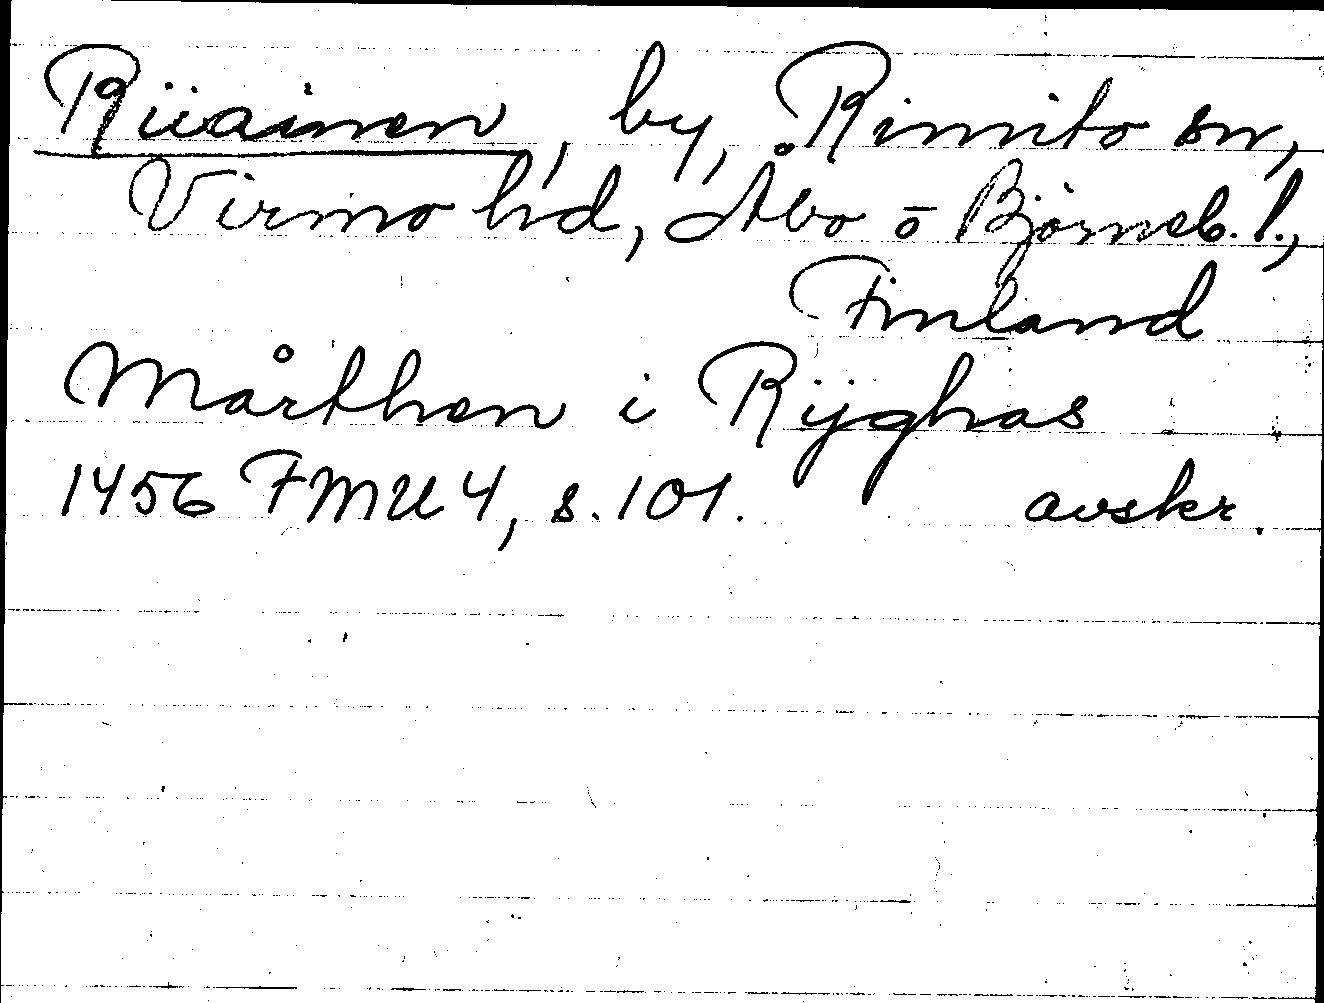 Riiainen, by, Rimito sn,
Virmo hd, Åbo o Björneb. l.,
Finland
Mårthen i Rijghas
1456 FMU 4, s. 101. avskr.